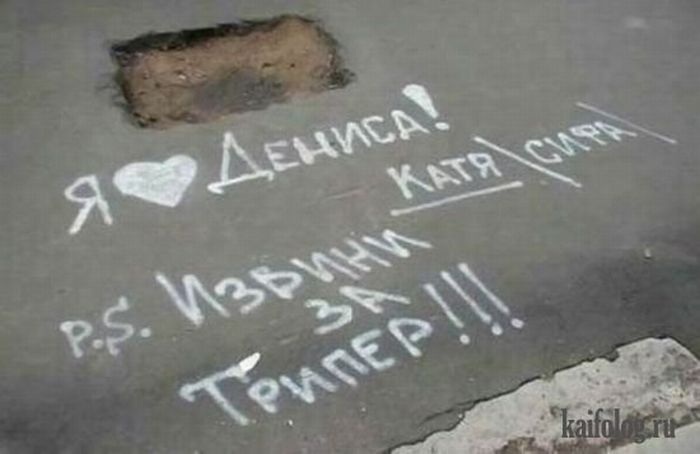 Я ❤ ДЕНИСА!
КАТЯ \СИФА\
P.S. ИЗВИНИ
ЗА
ТРИПЕР!!!
kaifolog.ru